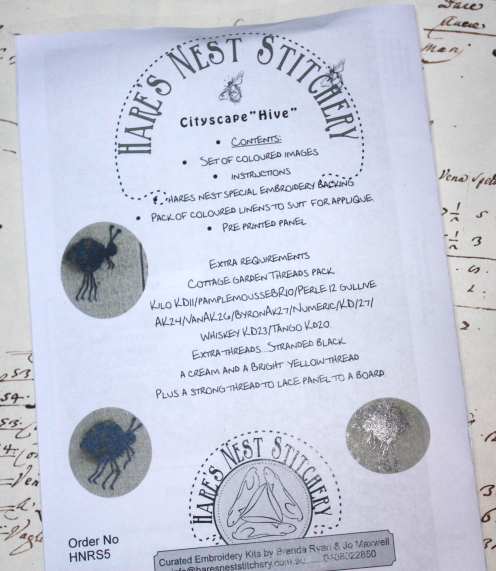 HARE'S NEST STITCHERY
Cityscape "Hive"
• CONTENTS:
• SET OF COLOURED IMAGES
• INSTRUCTIONS
• HARES NEST SPECIAL EMBROIDERY BACKING
• PACK OF COLOURED LINENS TO SUIT FOR APPLIQUE
• PRE PRINTED PANEL
EXTRA REQUIREMENTS
COTTAGE GARDEN THREADS PACK
KILO KD11/PAMPLEMOUSSEBR10/PERLE 12 GULLIVE
AK24/VANAK26/BYRONAK27/NUMERIC/KD/27/
WHISKEY KD23/TANGO KD20
EXTRA THREADS...STRANDED BLACK
A CREAM AND A BRIGHT YELLOW THREAD
PLUS A STRONG THREAD TO LACE PANEL TO A BOARD.
HARE'S NEST STITCHERY
Order No
HNRS5
Curated Embroidery Kits by Brenda Ryan & Jo Maxwell
info@haresneststitchery.com.au........0408022850